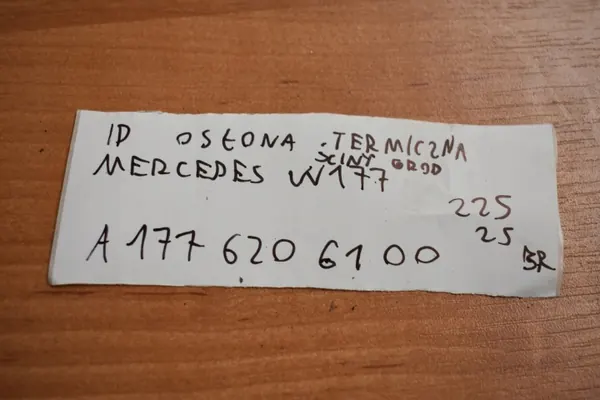 ID OSŁONA TERMICZNA
ŚCINY GROD
MERCEDES W177
225
25
A 177 620 61 00
BR